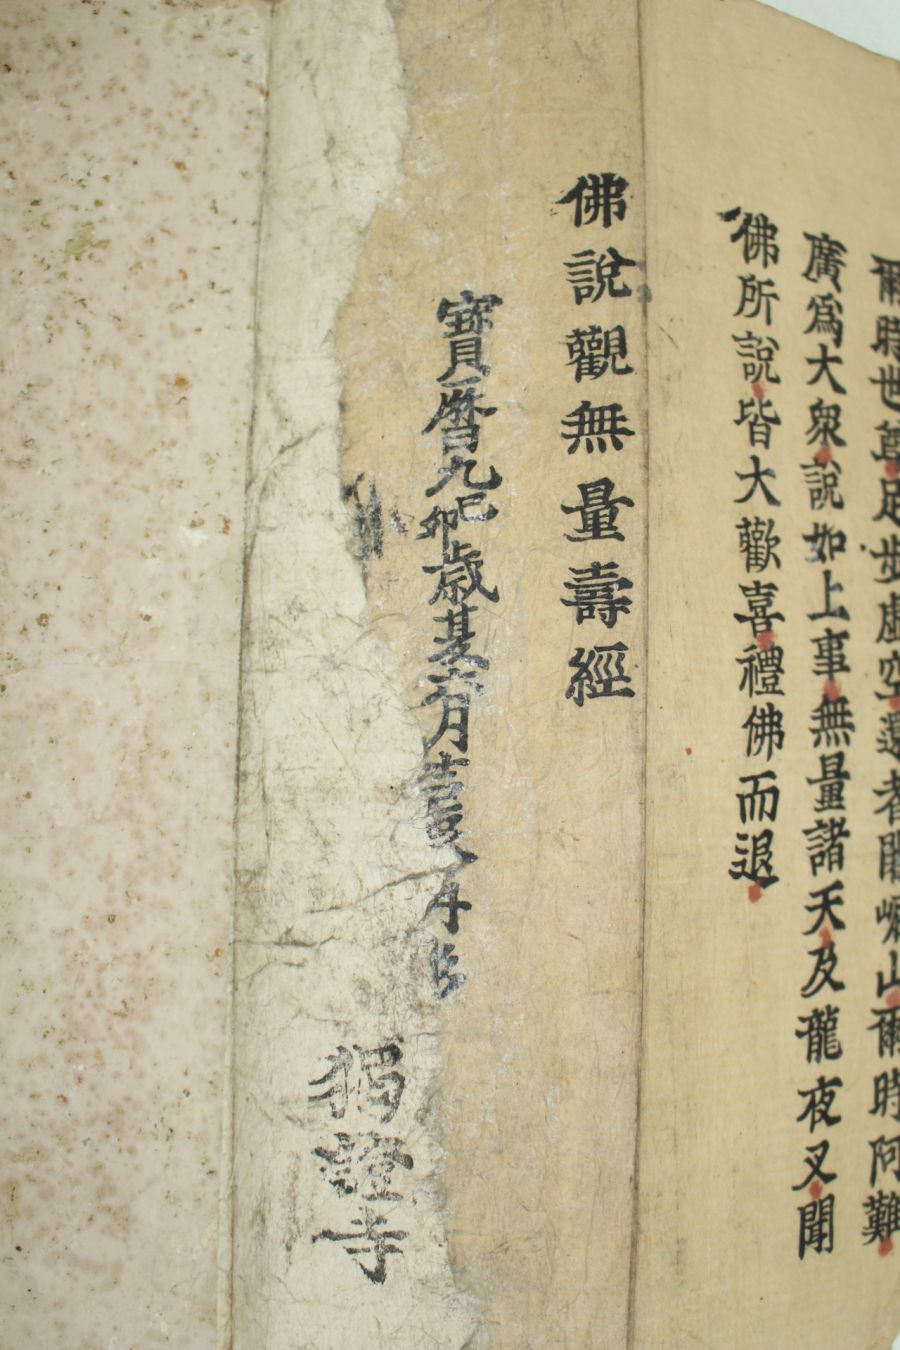 爾時世尊足步虛空還耆闍崛山爾時阿難
廣爲大衆說如上事無量諸天及龍夜叉聞
佛所說皆大歡喜禮佛而退
佛說觀無量壽經
寶曆九己卯歲夏六月吉
寺